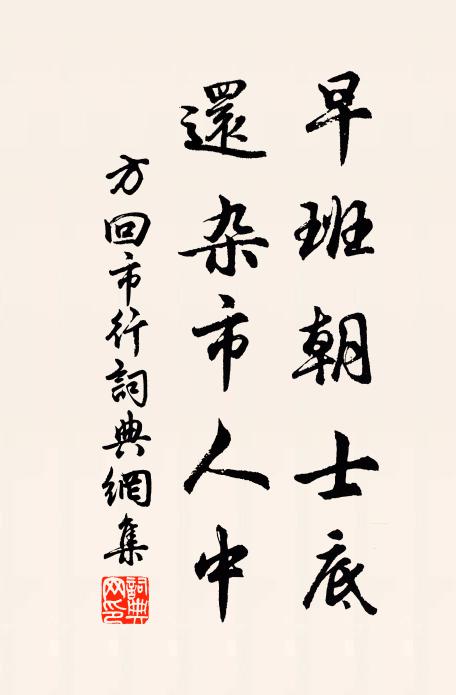 早班朝士底
還杂市人中
方回市行詞典網集
詞典网印